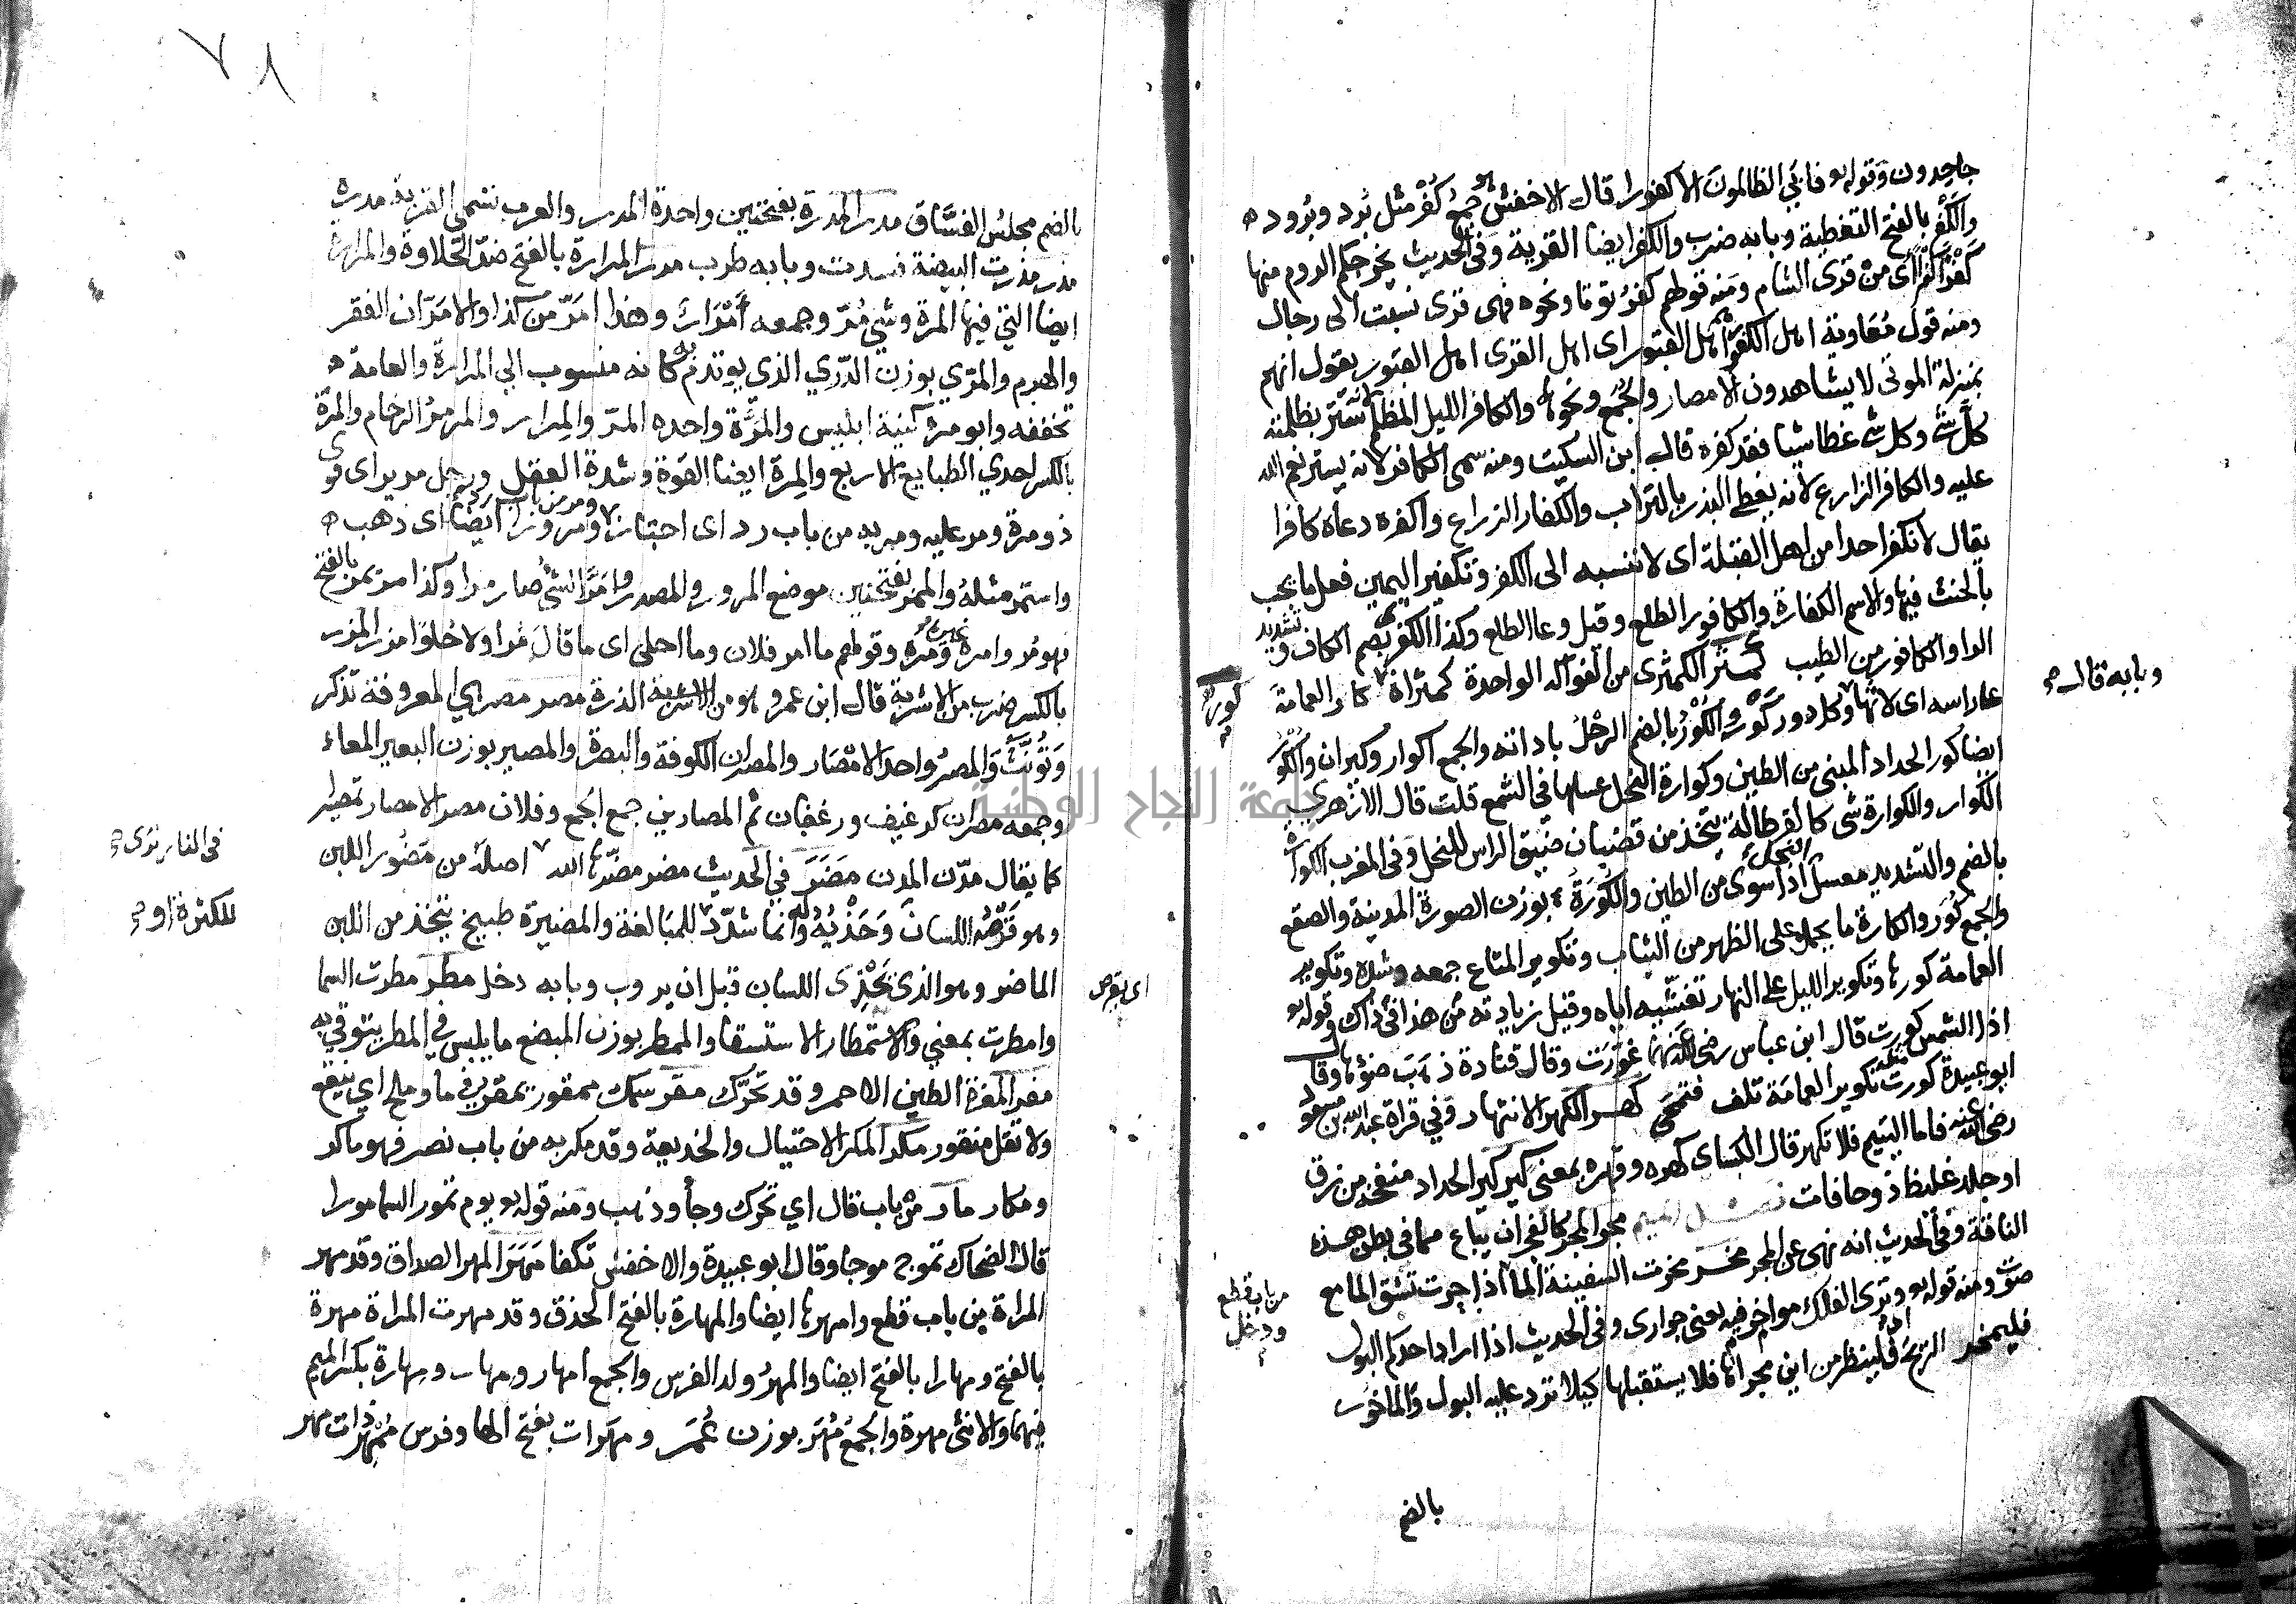 جاحدون وقوله فابى الظالمون الا كفورا قال الاخفش هو جمع كُفْر مثل بُرد وبُرود
والكَفْر بالفتح التغطية وبابه ضرب والكفر ايضا القرية وفي الحديث يخرجكم الروم منها
كَفْرًا كَفْرًا أى من قرى الشام ومنه قولهم كفر توثا ونحوه فهى قرى نسبت الى رجال
ومنه قول معاوية اهل الكفور هم اهل القبور اى اهل القرى اهل القبور يقول انهم
بمنزلة الموتى لا يشاهدون الامصار والجُمَع ونحوها والكافر الليل المظلم لانه ستر بظلمته
كل شى وكل شى غطا شيا فقد كفره قال ابن السكيت ومنه سمى الكافر لانه يستر نعم الله
عليه والكافر الزارع لانه يغطى البذر بالتراب والكفار الزراع واكفره دعاه كافرا
يقال لا تكفر احدا من اهل القبلة اى لا تنسبه الى الكفر وتكفير اليمين فعل ما يجب
بالحنث فيها والاسم الكفارة والكافور الطلع وقيل وعا الطلع وكذا الكفرى بضم الكاف وتشديد
الرا والكافور من الطيب كمثر الكمثرى من الفواكه الواحدة كمثراة كار العمامة
على راسه اى لاثها وكل دور كَوْر والكُوْر بالضم الرحْل باداته والجمع اكوار وكيران والكُوْر
ايضا كور الحداد المبنى من الطين وكوارة النحل عسلها في الشمع قلت قال الازهرى
الكوار والكوارة شى كالقرطالة يتخذ من قضبان ضيق الراس للنحل وفى المغرب الكوارة
بالضم والتشديد معسل النحل اذا سوى من الطين والكُورَةُ بوزن الصورة المدينة والصقع
والجمع كُوَر والكارة ما يحمل على الظهر من الثياب وتكوير المتاع جمعه وشده وتكوير
العمامة كورها وتكوير الليل على النهار تغشيه اياه وقيل زيادته من هذا فى ذاك وقوله
اذا الشمس كورت قال ابن عباس رضى الله عنهما غوّرت وقال قتادة ذهب ضوها وقال
ابو عبيدة كورت مثل تكوير العمامة تلف فتمحى كهر الكهر الانتهار وفي قراة عبد الله بن مسعود
رضى الله عنه فاما اليتيم فلا تكهر قال الكساى كهره وقهره بمعنى كير كير الحداد منفخه من زق
او جلد غليظ ذو حافات فصل الميم مجر المجر كالفجر ان يباع مما فى بطن هذه
الناقة وفى الحديث انه نهى عن المجر مخر مخرت السفينة الما اذا جرت تشق الما مع
صوت ومنه قوله وترى الفلك مواخر فيه يعنى جوارى وفى الحديث اذا اراد احدكم البول
فليتمخر الريح اى فلينظر من اين مجراها فلا يستقبلها كيلا ترد عليه البول والماخور
بالضم
وبابه قال
كور
من باب قطع
ودخل
٧٨
بالضم مجلس الفسّاق مدر المدرة بفتحتين واحدة المدر والعرب تسمى القرية مدرة
مذر مذرت البيضة فسدت وبابه طرب مرر المرارة بالفتح ضدّ الحلاوة والمرارة
ايضا التي فيها المرة وشي مُرّ وجمعه أمْرَار وهذا امَرّ من كذا والامَرّان الفقر
والهرم والمرّي بوزن الدّري الذي يوتدم به كانه منسوب الي المرارة والعامة
تخففه وابو مرة كنية ابليس والمُرّة واحده المرّ والمرار والمرمر الرخام والمِرّة
بالكسر احدي الطبايع الاربع والمِرة ايضا القوة وشدة العقل ورجل مرير اى قوى
ذو مرة ومر عليه ومر به من باب رد اى اجتاز ومر من باب رد ومرورا ايضا اى ذهب
واستمر مثله والممر بفتحتين موضع المرور والمصدر وامَرّ الشى صار مرا وكذا مر يمر بالفتح
فهو مُر وامره غيره ومرّه وقولهم ما امر فلان وما احلى اى ما قال مُرا ولا حُلوا مزر المزر
بالكسر ضرب من الاشربة قال ابن عمر وهو من الاشربة الذرة مصر مصر هي المعروفة تذكر
وتُونَّث والمصرُ واحد الامْصَار والمصران الكوفة والبصرة والمصير بوزن البعير المعاء
وجمعه مصران كرغيف ورغفان ثم المصارين جمع الجمع وفلان مصر الامصار تمصيرا
كما يقال مدّن المدن مَضَرَ في الحديث مضر مضّرها الله اصله من مُضُور اللبن
وهو قَرْصُه اللسان وَحَذْيُه له وانما شدّد للمبالغة والمضيرة طبيخ يتخذ من اللبن
الماضر وهو الذى يَحْذِى اللسان قبل ان يروب وبابه دخل مطر مطرت السما
وامطرت بمعني والاستمطار الاستسقا والممطر بوزن المبضع ما يلبس في المطر يتوقي به
مغر المغرة الطين الاحمر وقد تحَرَّك مقر سمك ممقور يمقر في ما وملح اي ينقع
ولا تقل منقور مكر المكر الاحتيال والخديعة وقد مكر به من باب نصر فهو ماكر
ومكار مار من باب قال اي تحرك وجأ وذهب ومنه قوله يوم تمور السما مورا
قال الضحاك تموج موجا وقال ابو عبيدة والاخفش تكفا مَهَرَ المهر الصداق وقد مهر
المراة من باب قطع وامهرها ايضا والمهارة بالفتح الحذق وقد مهرت المراة مهرة
بالفتح ومهارا بالفتح ايضا والمهرُ ولد الفرس والجمع امهار ومهار ومِهارة بكسر الميم
فيهما والانثى مهرة والجمع مُهَر بوزن عُمَر ومهَرات بفتح الها وفرس مُمْهِر ذات مهر
فى الفار نرى
للكثرة او
اى يقرص
جامعة النجاح الوطنية